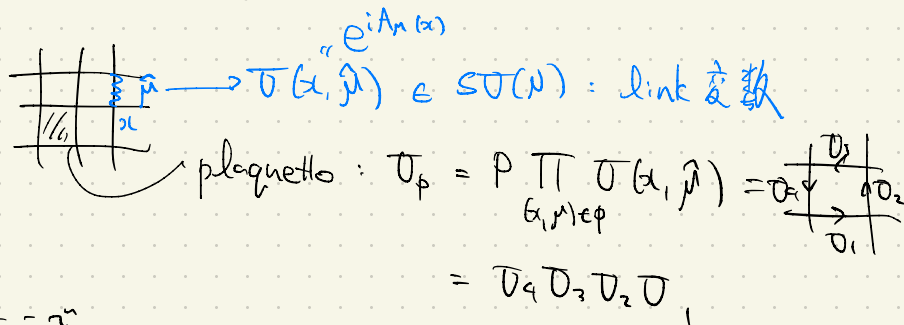 " e^{iA_μ(x)}
μ̂ → U(x, μ̂) ∈ SU(N) : link 変数
x
plaquette : U_p = P ∏_{(x,μ)∈p} U(x, μ̂) = U_4 U_3 U_2 U_1
= U_4 U_3 U_2 U_1